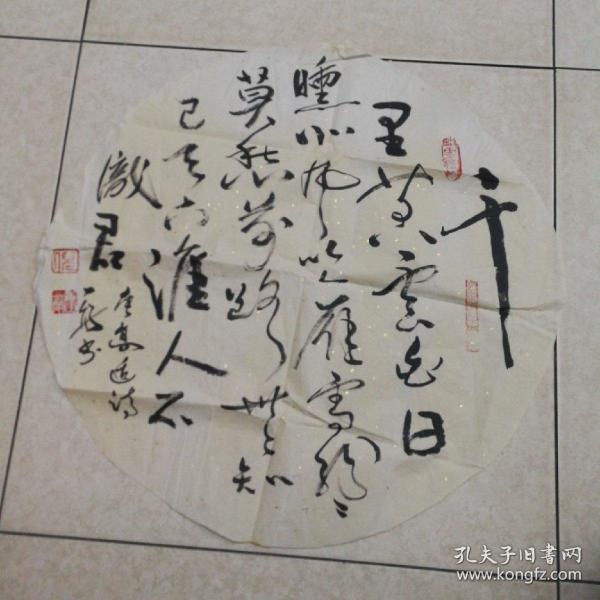 千
里黄雲白日
曛北風吹雁雪紛〻
莫愁前路無知
己天下誰人不
識君
唐高适诗
孔夫子旧书网
www.kongfz.com